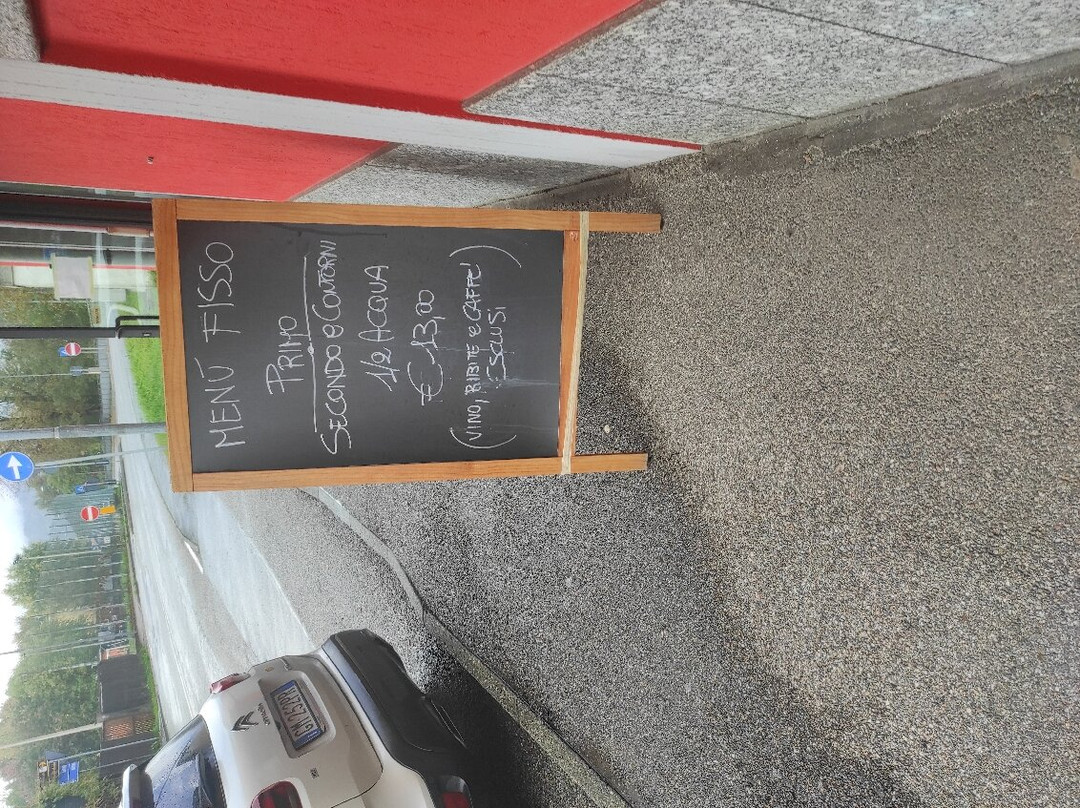 MENÙ FISSO
PRIMO
SECONDO e CONTORNI
1/2 ACQUA
€ 13,00
(VINO, BIBITE e CAFFE'
ESCLUSI)